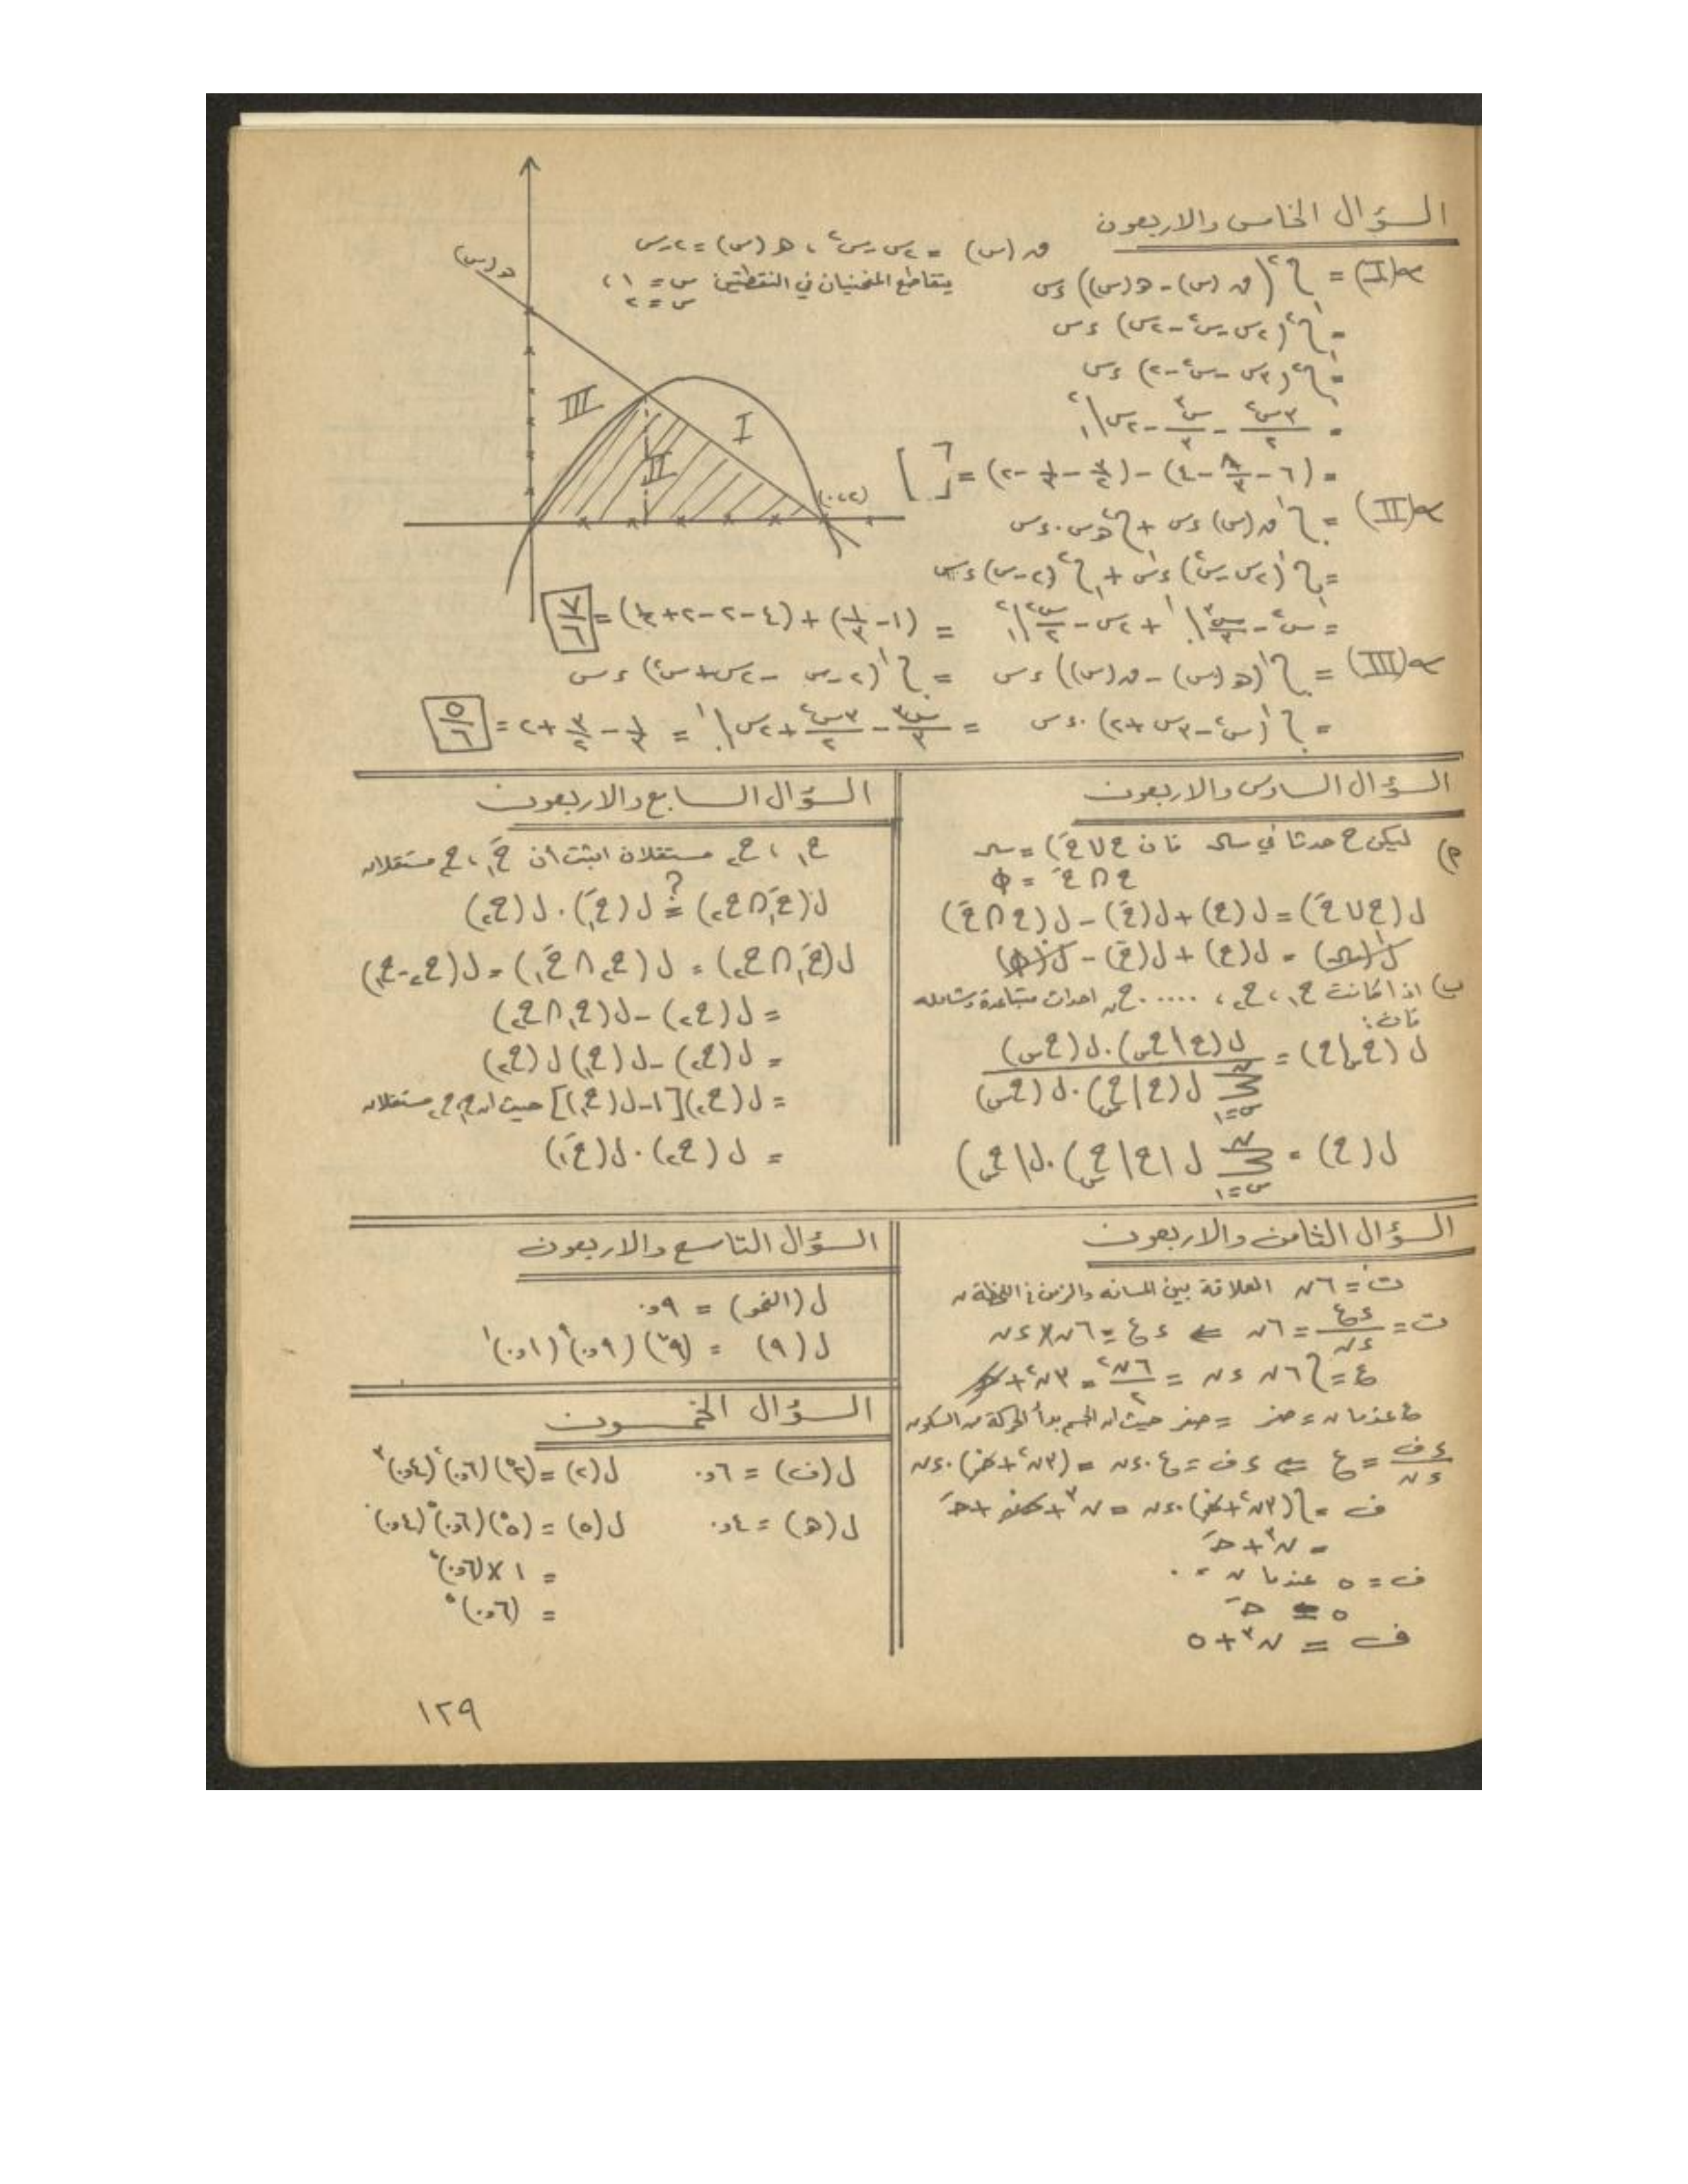 السؤال الخامس والاربعون
ق(س) = ٢س - س٢ ، هـ(س) = ٢ - س
يتقاطع المنحنيان في النقطتين س = ١ ،
س = ٢
هـ(س)
م(I) = ∫١٢ (ق(س) - هـ(س)) ءس
= ∫١٢ (٢س - س٢ - ٢ + س) ءس
= ∫١٢ (٣س - س٢ - ٢) ءس
= ٣س٢/٢ - س٣/٣ - ٢س |١٢
= (٦ - ٨/٣ - ٤) - (٣/٢ - ١/٣ - ٢) = [ ]
I
II
III
(٢،٠)
م(II) = ∫٠١ ق(س) ءس + ∫١٢ هـس٠ءس
= ∫٠١ (٢س - س٢) ءس + ∫١٢ (٢ - س) ءس
= س٢ - س٣/٣ |٠١ + ٢س - س٢/٢ |١٢ = (١ - ١/٣) + (٤ - ٢ - ٢ + ١/٢) = ٧/٦
م(III) = ∫٠١ (هـ(س) - ق(س)) ءس = ∫٠١ (٢ - س - ٢س + س٢) ءس
= ∫٠١ (س٢ - ٣س + ٢) ٠ءس = س٣/٣ - ٣س٢/٢ + ٢س |٠١ = ١/٣ - ٣/٢ + ٢ = ٥/٦
السؤال السادس والاربعون
ليكن ح حدثا في فان ح U حَ) =
ح ∩ حَ = φ
ل(ح U حَ) = ل(ح) + ل(حَ) - ل(ح ∩ حَ)
= ل(ح) + ل(حَ) - ل(φ)
ب) اذا كانت ح١ ، ح٢ ، ..... حن احداث متباعدة وشامله
فان:
ل(حس|ح) = ل(ح|حس)٠ل(حس) / ∑س=١ن ل(ح|حس)٠ل(حس)
ل(ح) = ∑س=١ن ل(ح|حس)٠ل(حس)
السؤال السابع والاربعون
ح١ ، ح٢ مستقلان اثبت أن حَ١ ، ح٢ مستقلان
ل(حَ١ ∩ ح٢) =؟ ل(حَ١) ٠ ل(ح٢)
ل(حَ١ ∩ ح٢) = ل(ح٢ ∩ حَ١) = ل(ح٢ - ح١)
= ل(ح٢) - ل(ح١ ∩ ح٢)
= ل(ح٢) - ل(ح١) ل(ح٢)
= ل(ح٢)[١ - ل(ح١)] حيث ان ح١ ، ح٢ مستقلان
= ل(ح٢) ٠ ل(حَ١)
السؤال الثامن والاربعون
ت = ٦ن العلاقة بين المسافه والزمن في اللحظة ن
ت = ءع/ءن = ٦ن ⇐ ءع = ٦ن × ءن
ع = ∫٦ن ءن = ٦ن٢/٢ = ٣ن٢ + جـ
عندما ن = صفر = صفر حيث ان الجسم بدأ الحركة من السكون
ءف/ءن = ع ⇐ ءف = ع ٠ءن = (٣ن٢ + صفر) ٠ءن
ف = ∫(٣ن٢ + صفر) ٠ءن = ن٣ + صفر + جـَ
= ن٣ + جـَ
ف = ٥ عندما ن = ٠
٥ = جـَ
ف = ن٣ + ٥
السؤال التاسع والاربعون
ل(النمو) = ٩و٠
ل(٩) = (٩و٠)٩ (١و٠)١
السؤال الخمسون
ل(ف) = ٦و٠ ل(٢) = (٥٢) (٦و٠)٢ (٤و٠)٣
ل(هـ) = ٤و٠ ل(٥) = (٥٥) (٦و٠)٥ (٤و٠)٠
= ١ × (٦و٠)٥
= (٦و٠)٥
١٢٩